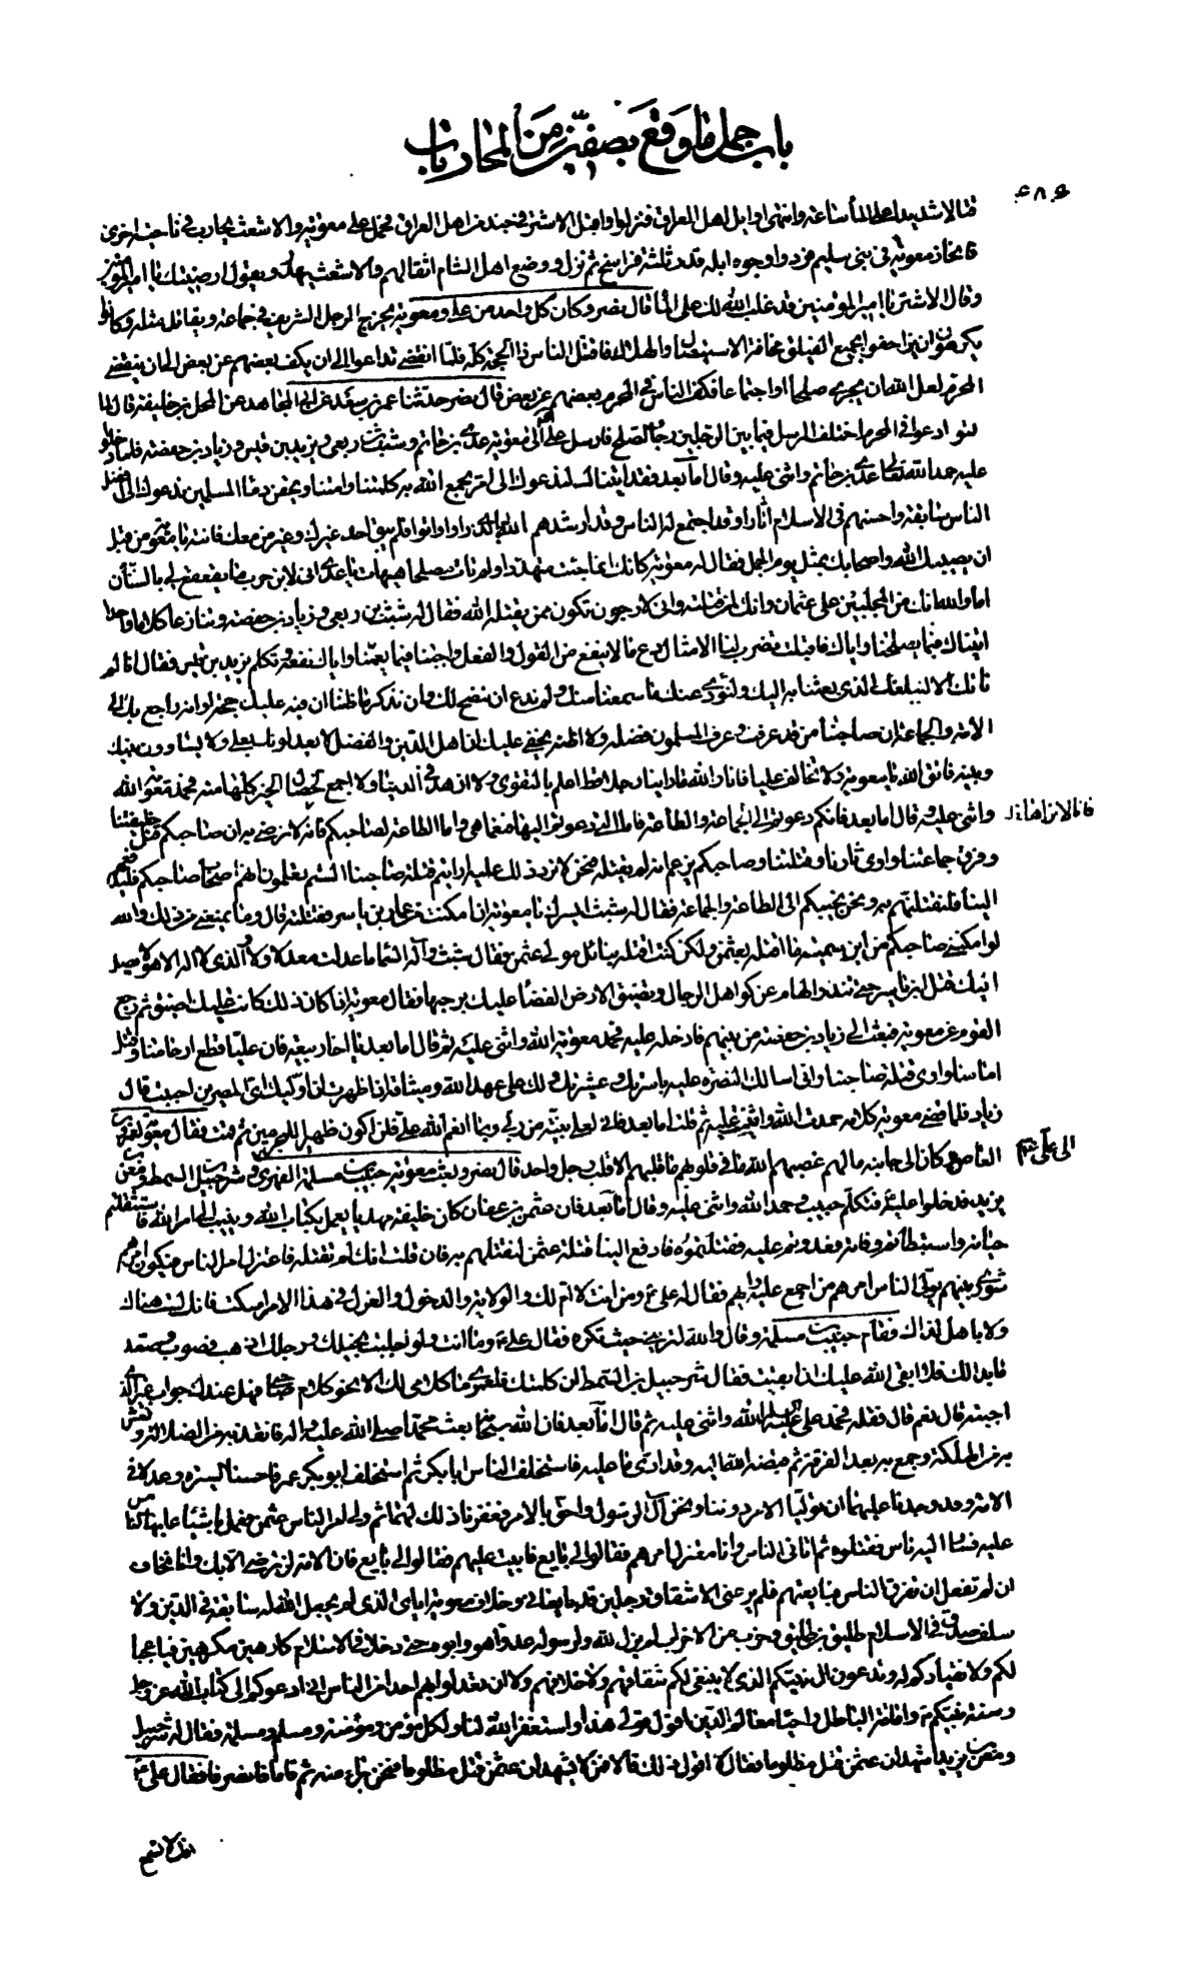 باب جمل ما وقع بصفين من المحاربات
٤٨٤
قتالا شديدا على الماء ساعة وانتهى اوايل اهل العراق فنزلوا واقبل الاشتر في جند من اهل العراق فحمل على معوية والاشعث يحارب في ناحية اخرى
فانحاز معوية في بني سليم فردوا وجوه ابله قدر ثلثة فراسخ ثم نزل ووضع اهل الشام اثقالهم والاشعث يهدر ويقول ارضيتك يا امير المؤمنين
وقال الاشتر يا امير المؤمنين قد غلب الله لك على الماء قال نصر وكان كل واحد من علي ومعوية يخرج الرجل الشريف في جماعة ويقاتل مثله وكانوا
يكرهون ان يزاحفوا بجميع الفيلق مخافة الاستيصال والهلاك فاقتتل الناس ذا الحجة كله فلما انقضى تداعوا الى ان يكف بعضهم عن بعض الى ان ينقضي
المحرم لعل الله ان يجري صلحا او اجتماعا فكف الناس في المحرم بعضهم عن بعض قال نصر حدثنا عمر بن سعد عن ابي المجاهد عن المحل بن خليفة قال لما
توادعوا في المحرم اختلف الرسل فيما بين الرجلين رجاء الصلح فارسل علي الى معوية عدي بن حاتم وشبث بن ربعي ويزيد بن قيس وزياد بن حفصة فلما دخلوا
عليه حمد الله تعالى عدي بن حاتم واثنى عليه وقال اما بعد فقد اتيناك لندعوك الى امر يجمع الله به كلمتنا وامتنا ويحقن دماء المسلمين ندعوك الى افضل
الناس سابقة واحسنهم في الاسلام آثارا وقد اجتمع له الناس وقد ارشدهم الله بالذي راوا واتوا فلم يبق احد غيرك وغير من معك فانته يا معوية من قبل
ان يصيبك الله واصحابك بمثل يوم الجمل فقال له معوية كانك انما جئت متهددا ولم تات مصلحا هيهات يا عدي اني لابن حرب ما يقعقع لي بالشنان
اما والله انك من المجلبين على عثمان وانك لمن قتلته واني لارجو ان تكون ممن يقتله الله فقال له شبث بن ربعي وزياد بن حفصة وتنازعا كلاما واحدا
اتيناك فيما يصلحنا واياك فاقبلت تضرب لنا الامثال دع ما لا ينفع من القول والفعل واجبنا فيما يعمنا واياك نفعه وتكلم يزيد بن قيس فقال انا لم
ناتك الا لنبلغك الذي بعثنا به اليك ولنؤدي عنك ما سمعنا منك ولم ندع ان ننصح لك وان نذكر ما ظننا ان فيه عليك حجة او انه راجع بك الى
الالفة والجماعة ان صاحبنا من قد عرفت وعرف المسلمون فضله ولا اظنه يخفى عليك ان اهل الدين والفضل لا يعدلونك بعلي ولا يساوون بينك
وبينه فاتق الله يا معوية ولا تخالف عليا فانا والله ما راينا رجلا قط اعلم بالتقوى ولا ازهد في الدنيا ولا اجمع لخصال الخير كلها منه فحمد معوية الله
واثنى عليه وقال اما بعد فانكم دعوتم الى الجماعة والطاعة فاما التي دعوتم اليها فنعما هي واما الطاعة لصاحبكم فانه لا نرضى به ان صاحبكم قتل خليفتنا
وفرق جماعتنا واوى ثارنا وقتلتنا وصاحبكم يزعم انه لم يقتله فنحن لا نرد ذلك عليه ارايتم قتلة صاحبنا الستم تعلمون انهم اصحاب صاحبكم فليدفعهم
الينا فلنقتلنهم به ونحن نجيبكم الى الطاعة والجماعة فقال له شبث ايسرك يا معوية ان امكنت من عمار بن ياسر فقتلته قال وما يمنعني من ذلك والله
لو امكنني صاحبكم من ابن سمية ما اقتله بعثمن ولكن كنت اقتله بنائل مولى عثمن فقال شبث واله السماء ما عدلت معدلا ولا والذي لا اله الا هو لا تصل
اليك قتل ابن ياسر حتى تندر الهام عن كواهل الرجال وتضيق الارض الفضاء عليك برحبها فقال معوية اذا كان ذلك كانت عليك اضيق ثم رجع
القوم عن معوية فبعث الى زياد بن حفصة من بينهم فادخله عليه فحمد معوية الله واثنى عليه ثم قال اما بعد يا اخا ربيعة فان عليا قطع ارحامنا وقتل
امامنا واوى قتلة صاحبنا واني اسالك النصرة عليه باسرتك وعشيرتك ولك علي عهد الله وميثاقه اذا ظهرت ان اوليك اي المصرين احببت قال
زياد فلما قضى معوية كلامه حمدت الله واثنيت عليه ثم قلت اما بعد فاني لعلى بينة من ربي وبما انعم الله علي فلن اكون ظهيرا للمجرمين ثم قمت فقال معوية لعمرو بن
العاص وكان الى جانبه ما لهم عضبهم الله ما في قلوبهم ما قلبهم الا قلب رجل واحد قال نصر وبعث معوية حبيب بن مسلمة الفهري وشرحبيل بن السمط ومعن بن
يزيد فدخلوا على علي فتكلم حبيب وحمد الله واثنى عليه وقال اما بعد فان عثمن بن عفان كان خليفة مهديا يعمل بكتاب الله وينيب الى امر الله فاستثقلتم
حياته واستبطاتم وفاته فعدوتم عليه فقتلتموه فادفع الينا قتلة عثمن لنقتلهم به فان قلت انك لم تقتله فاعتزل امر الناس فيكون امرهم
شورى بينهم يولي الناس امرهم من اجمع عليه رايهم فقال له علي ع ومن انت لا ام لك والولاية والدخول والعزل في هذا الامر اسكت فانك لست هناك
ولا باهل لذاك فقام حبيب بن مسلمة وقال والله لتريني حيث تكره فقال علي ع وما انت ولو اجلبت بخيلك ورجلك اذهب فصوب وصعد
ما بدا لك فلا ابقى الله عليك ان ابقيت فقال شرحبيل بن السمط ان كلمتك فلعمري ما كلامي لك الا نحو كلام صاحبي فهل عندك جواب غير الذي
اجبته قال نعم قال فقله فحمد علي عليه السلام الله واثنى عليه ثم قال اما بعد فان الله سبحانه بعث محمدا صلى الله عليه واله فانقذ به من الضلالة ونعش
به من الهلكة وجمع به بعد الفرقة ثم قبضه الله اليه وقد ادى ما عليه فاستخلف الناس ابا بكر ثم استخلف ابو بكر عمر فاحسنا السيرة وعدلا في
الامة وقد وجدنا عليهما ان توليا الامر دوننا ونحن آل الرسول واحق بالامر فغفرنا ذلك لهما ثم ولي امر الناس عثمن فعمل باشياء عابها الناس
عليه فسار اليه ناس فقتلوه ثم اتاني الناس وانا معتزل امرهم فقالوا لي بايع فابيت عليهم فقالوا لي بايع فان الامة لن ترضى الا بك وانا نخاف
ان لم تفعل ان تفرق الناس فبايعتهم فلم يرعني الا شقاق رجلين قد بايعاني وخلاف معوية اياي الذي لم يجعل الله له سابقة في الدين ولا
سلف صدق في الاسلام طليق بن طليق وحزب من الاحزاب لم يزل لله ولرسوله عدوا هو وابوه حتى دخلا في الاسلام كارهين مكرهين فيا عجبا
لكم ولانقيادكم له وتدعون ال نبيكم الذي لا ينبغي لكم شقاقهم ولا خلافهم ولا ان تعدلوا بهم احدا من الناس اني ادعوكم الى كتاب الله عز وجل
وسنة نبيكم وامانة الباطل واحياء معالم الدين اقول قولي هذا واستغفر الله لنا ولكل مؤمن ومؤمنة ومسلم ومسلمة فقال له شرحبيل
ومعن بن يزيد اتشهد ان عثمن قتل مظلوما فقال لا اقول ذلك قالا فمن لا يشهد ان عثمن قتل مظلوما فنحن براء منه ثم قاما فانصرفا فقال علي ع
انك لا تسمع